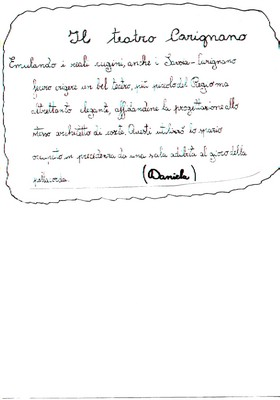 Il teatro Carignano
Emulando i reali cugini, anche i Savoia-Carignano
fecero erigere un bel teatro, più piccolo del Regio ma
altrettanto elegante, affidandone la progettazione allo
stesso architetto di corte. Questi utilizzò lo spazio
occupato in precedenza da una sala adibita al gioco della
pallacorda.
(Daniela)